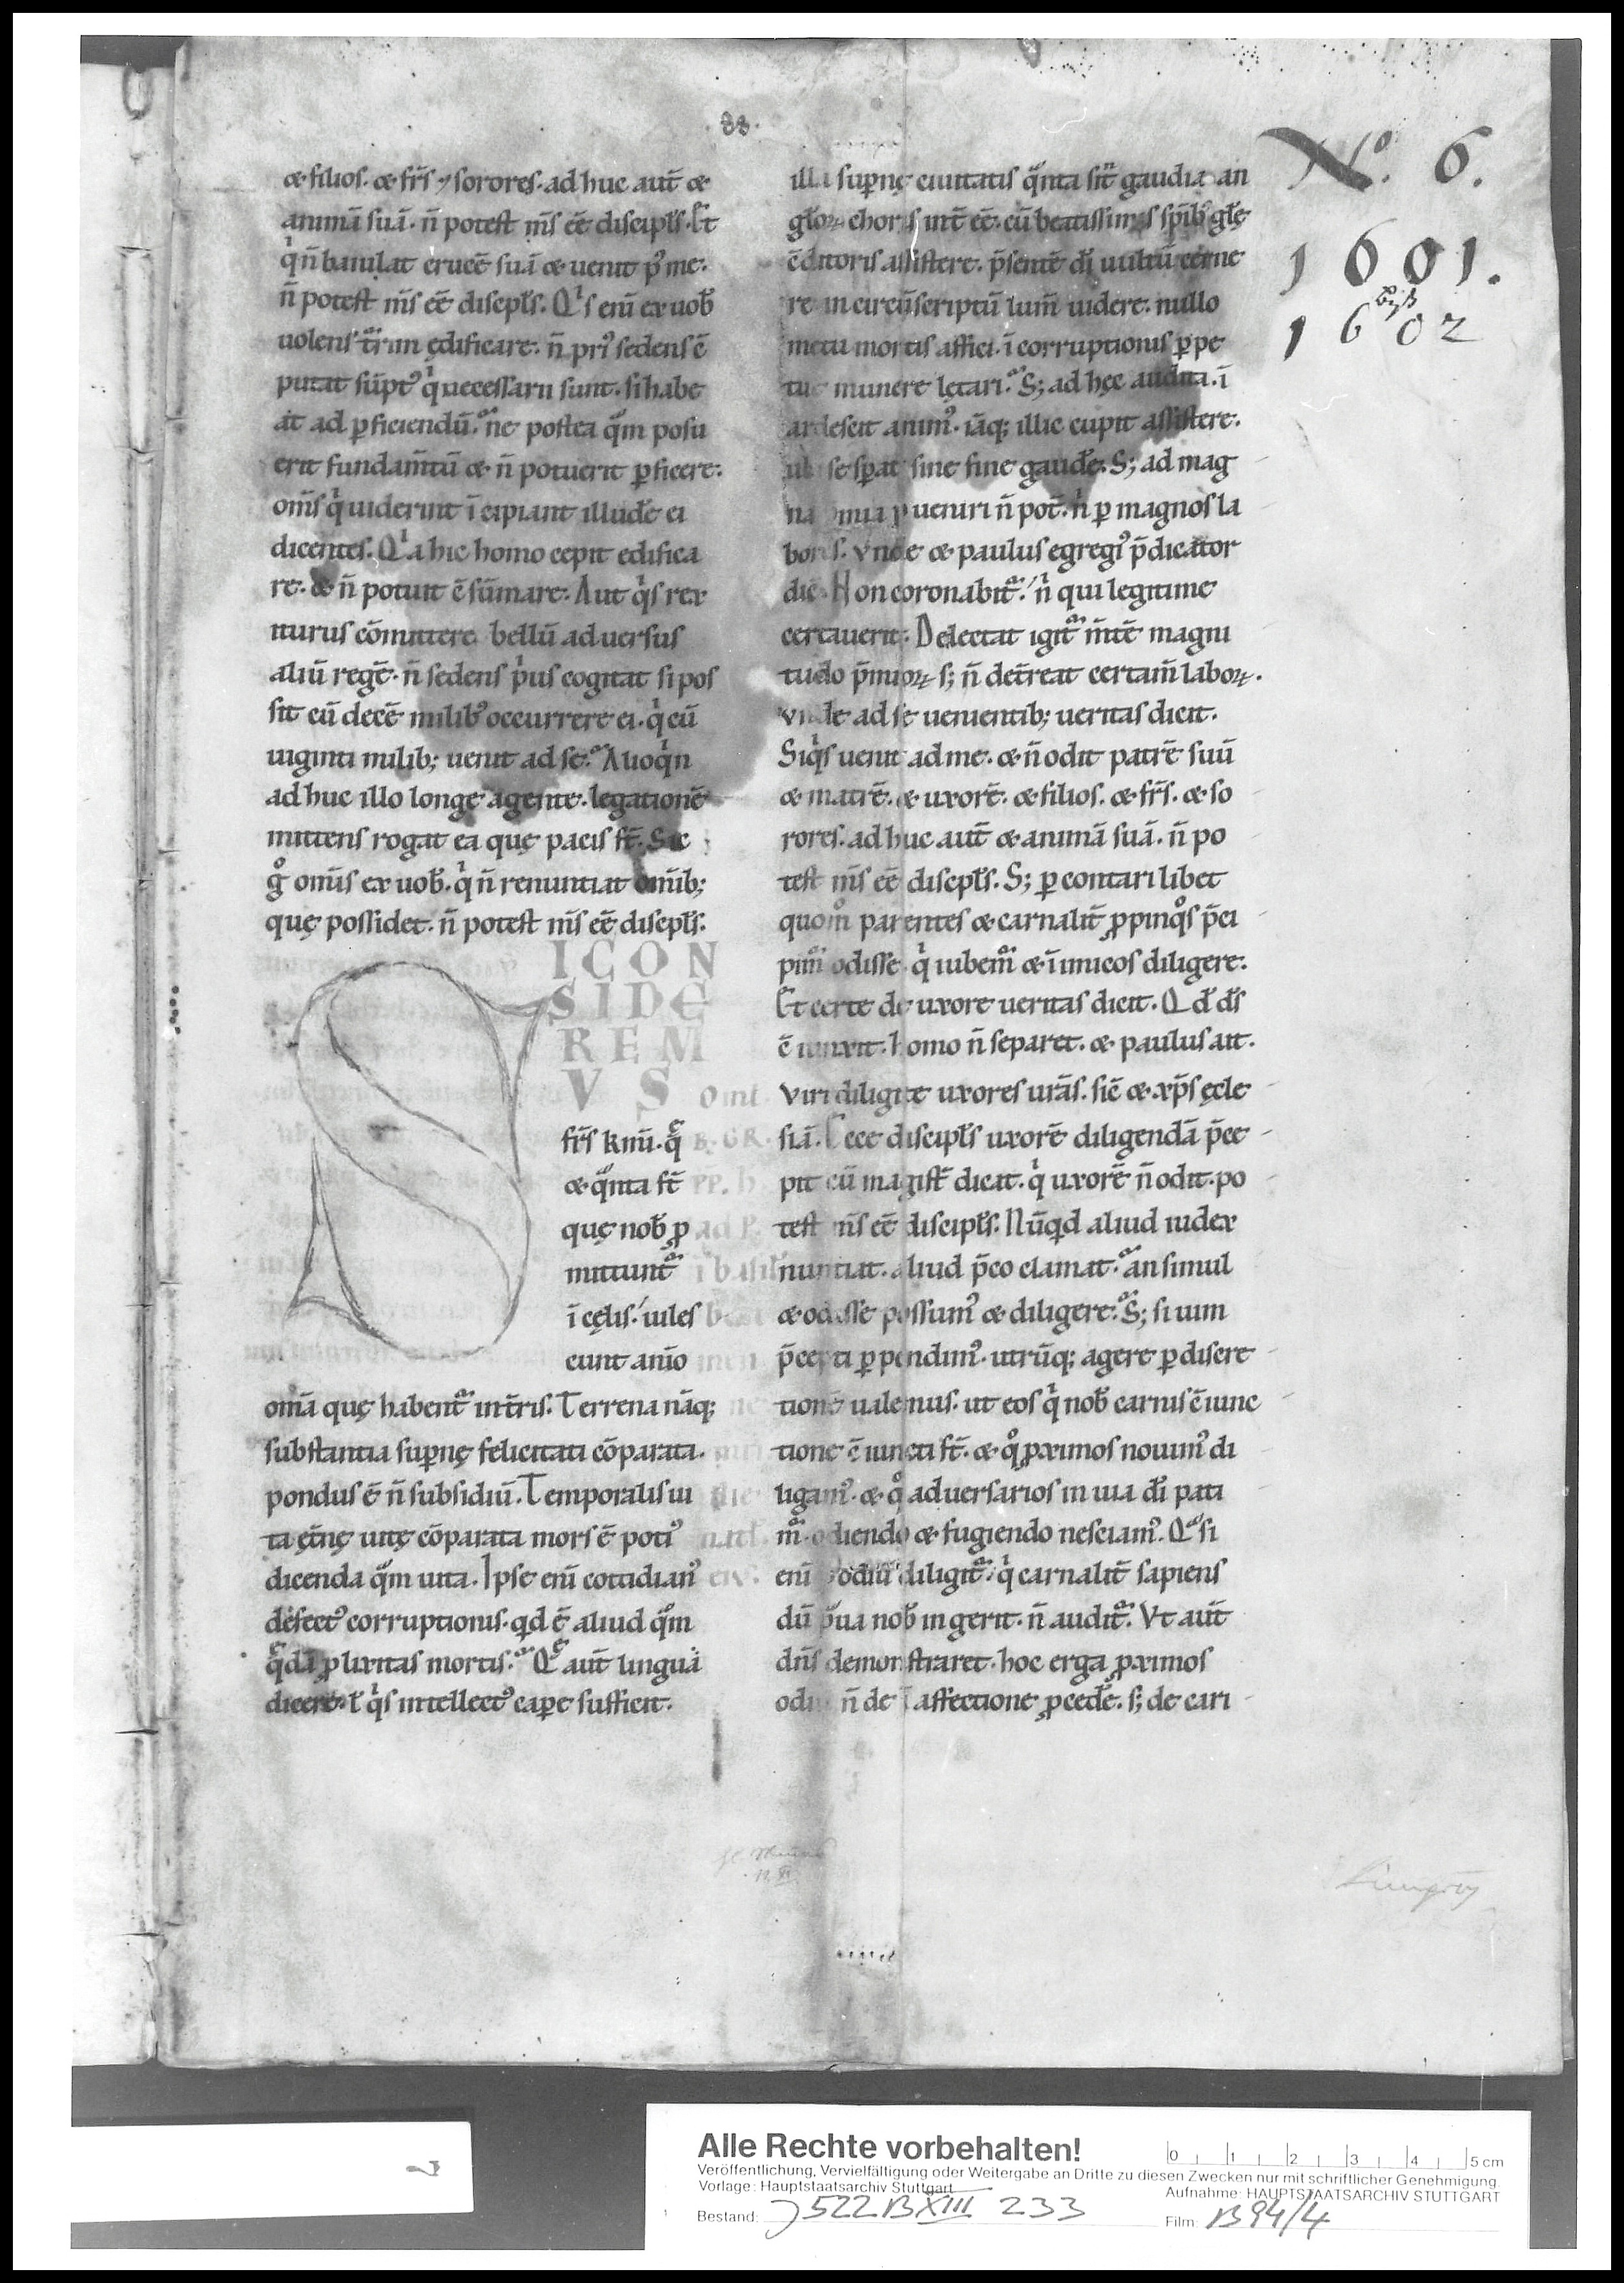 .88.
& filios. & fr̄s ⁊ sorores. ad huc aut̄ &
animā suā. n̄ potest m̄s eē discipl̄s. Et
qⁱ n̄ baiulat crucē suā & uenit p̄ me.
n̄ potest m̄s eē discipl̄s. Qⁱs enī ex uob̄
uolens turrim ędificare. n̄ priꝰ sedens c̄
putat sūptꝰ qⁱ necessarii sunt. si habe
at ad ꝑficiendū. ne postea qᵃm posu
erit fundam̄tū & n̄ potuerit ꝑficere.
om̄s qⁱ uiderint īcipiant illudē ei
dicentes. Qⁱa hic homo cepit edifica
re. & n̄ potuit c̄sūmare. Aut qⁱs rex
iturus cōmittere bellū aduersus
aliū regē. n̄ sedens pⁱus cogitat si pos
sit cū decē milibꝰ occurrere ei. qⁱ cū
uiginti milib; uenit ad se. Alioqⁱn
ad huc illo longę agente. legationē
mittens rogat ea quę pacis st̄. Sic
gᵒ om̄is ex uob̄. qⁱ n̄ renuntiat om̄ib;
quę possidet. n̄ potest m̄s eē discipl̄s.
S ICON
SIDE
REM
VS
fr̄s kmī. qᵉ
& qᵃnta st̄
quę nob̄ ꝓ
mittunt᷑
ī cęlis. uiles
cunt anīo
om̄ā quę habent᷑ int̄ris. Terrena nāq;
substantia suꝑnę felicitati cōparata.
pondus ē n̄ subsidiū. Temporalis ui
ta ęt̄nę uitę cōparata mors ē potiꝰ
dicenda qᵃm uita. Ipse enī cottidianꝰ
defectꝰ corruptionis. qd ē aliud qᵃm
qᵉdā ꝓlixitas mortis. Qᵉ aut̄ lingua
dicere. ł qⁱs intellectꝰ caꝑe sufficit.
illa suꝑnę ciuitatis qᵃnta sīt gaudia. an
gl̄oꝝ choris int̄ eē. cū beatissimis sp̄ib; gl̄ę
c̄ditoris assistere. p̄sentē dī uultū cerne
re. incircūscriptū lum̄ uidere. nullo
metu mortis affici. ī corruptionis ꝑpe
tuę munere lętari. S; ad hęc audita. ī
ardescit animꝰ. iāq; illic cupit assistere.
ubi se sꝑat sine fine gaudē. S; ad mag
na p̄mia ꝑueniri n̄ pot̄. nⁱ ꝑ magnos la
bores. Vnde & paulus egregiꝰ p̄dicator
dic̄. Non coronabit᷑. nⁱ qui legitime
certauerit. Delectat igit᷑ m̄tē magni
tudo p̄mioꝝ. s; n̄ det̄reat certam̄ laboꝝ.
Vnde ad se uenientib; ueritas dicit.
Siqⁱs uenit ad me. & n̄ odit patrē suū
& matrē. & uxorē. & filios. & fr̄s. & so
rores. ad huc aut̄ & animā suā. n̄ po
test m̄s eē discipl̄s. S; ꝑcontari libet
quom̊ parentes & carnalit̄ ꝓpinqᵒs p̄ci
pim᷑ odisse. qⁱ iubem᷑ & īimicos diligere.
Et certe de uxore ueritas dicit. Qd̄ ds̄
c̄iunxit. homo n̄ separet. & paulus ait.
Viri diligite uxores ur̄as. sic̄ & xp̄s ęcle
siā. Ecce discipl̄s uxorē diligendā p̄ce
pit cū magist̄ dicat. qⁱ uxorē n̄ odit. po
test m̄s eē discipl̄s. Nūqd aliud iudex
nuntiat. aliud p̄co clamat. an simul
& odisse possumꝰ & diligere. S; si uim
p̄cepti ꝑpendimꝰ. utrūq; agere ꝑ discre
tionē ualemus. ut eos qⁱ nob̄ carnis c̄iunc
tione c̄iuncti st̄. & qᵒs ꝓximos nouimꝰ di
ligamꝰ. & qᵒs aduersarios in uia dī pati
m᷑. odiendo & fugiendo nesciamꝰ. Qᵃsi
enī ꝑ odiū diligit᷑. qⁱ carnalit̄ sapiens
dū pᵃua nob̄ ingerit. n̄ audit᷑. Vt aut̄
dn̄s demonstraret. hoc erga ꝓximos
odiū n̄ de ī affectione ꝓcedē. s; de cari
No. 6.
1601.
biß
1602
Alle Rechte vorbehalten!
Veröffentlichung, Vervielfältigung oder Weitergabe an Dritte zu diesen Zwecken nur mit schriftlicher Genehmigung.
Vorlage: Hauptstaatsarchiv Stuttgart
Aufnahme: HAUPTSTAATSARCHIV STUTTGART
Bestand: J 522 B XIII 233
Film: B 94/4
0 1 2 3 4 5 cm